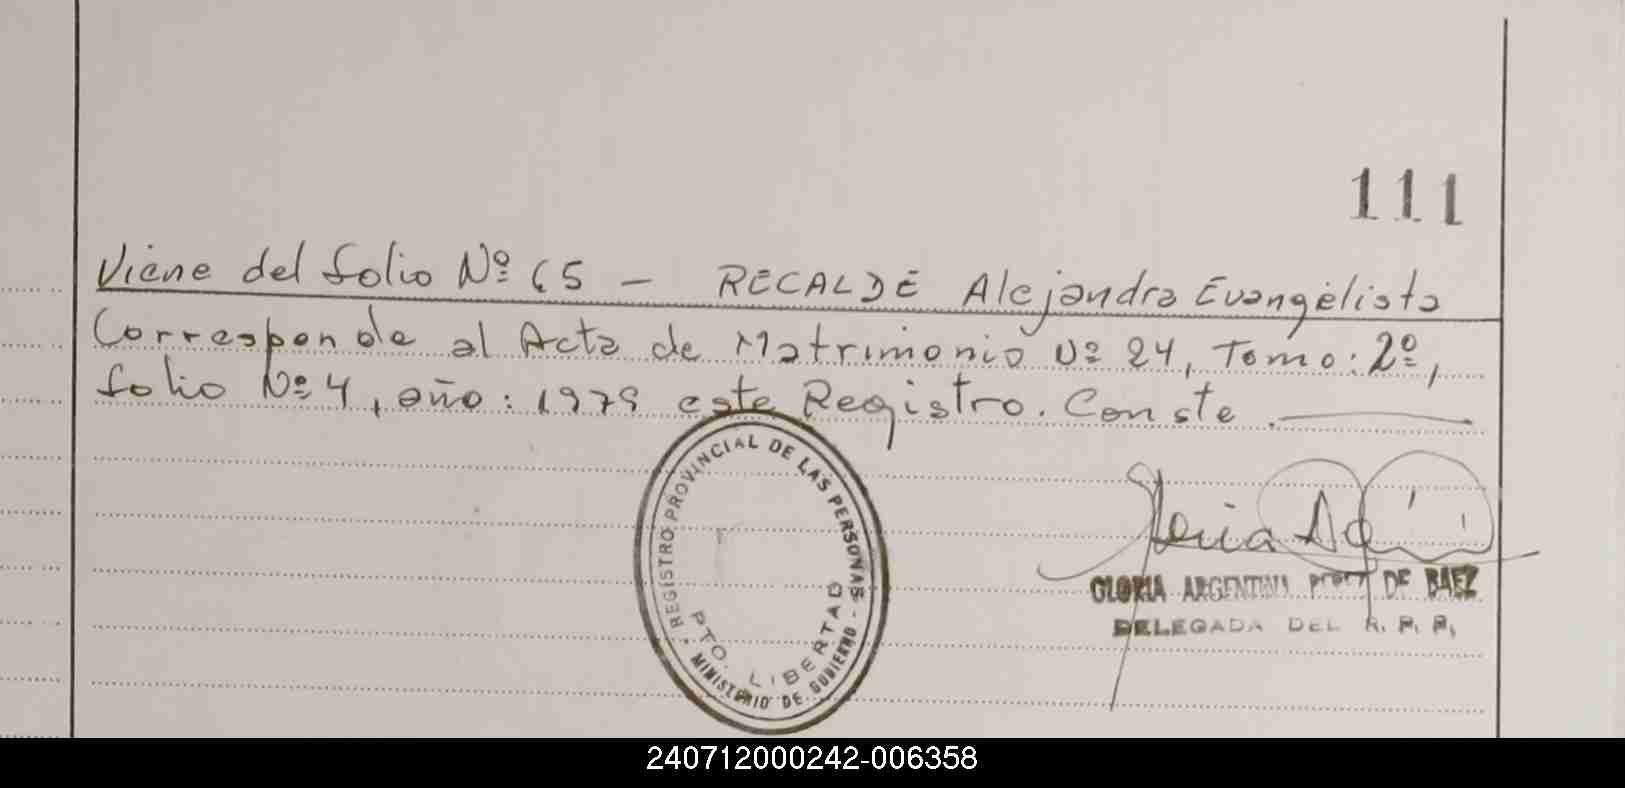 111
Viene del folio Nº 65 - RECALDE Alejandra Evangelista
Corresponde al Acta de Matrimonio Nº 24, Tomo: 2º,
folio Nº 4, año: 1979 este Registro. Conste.
REGISTRO PROVINCIAL DE LAS PERSONAS - MINISTERIO DE GOBIERNO -
PTO. LIBERTAD
GLORIA ARGENTINA PEREZ DE BAEZ
DELEGADA DEL R. P. P.
240712000242-006358